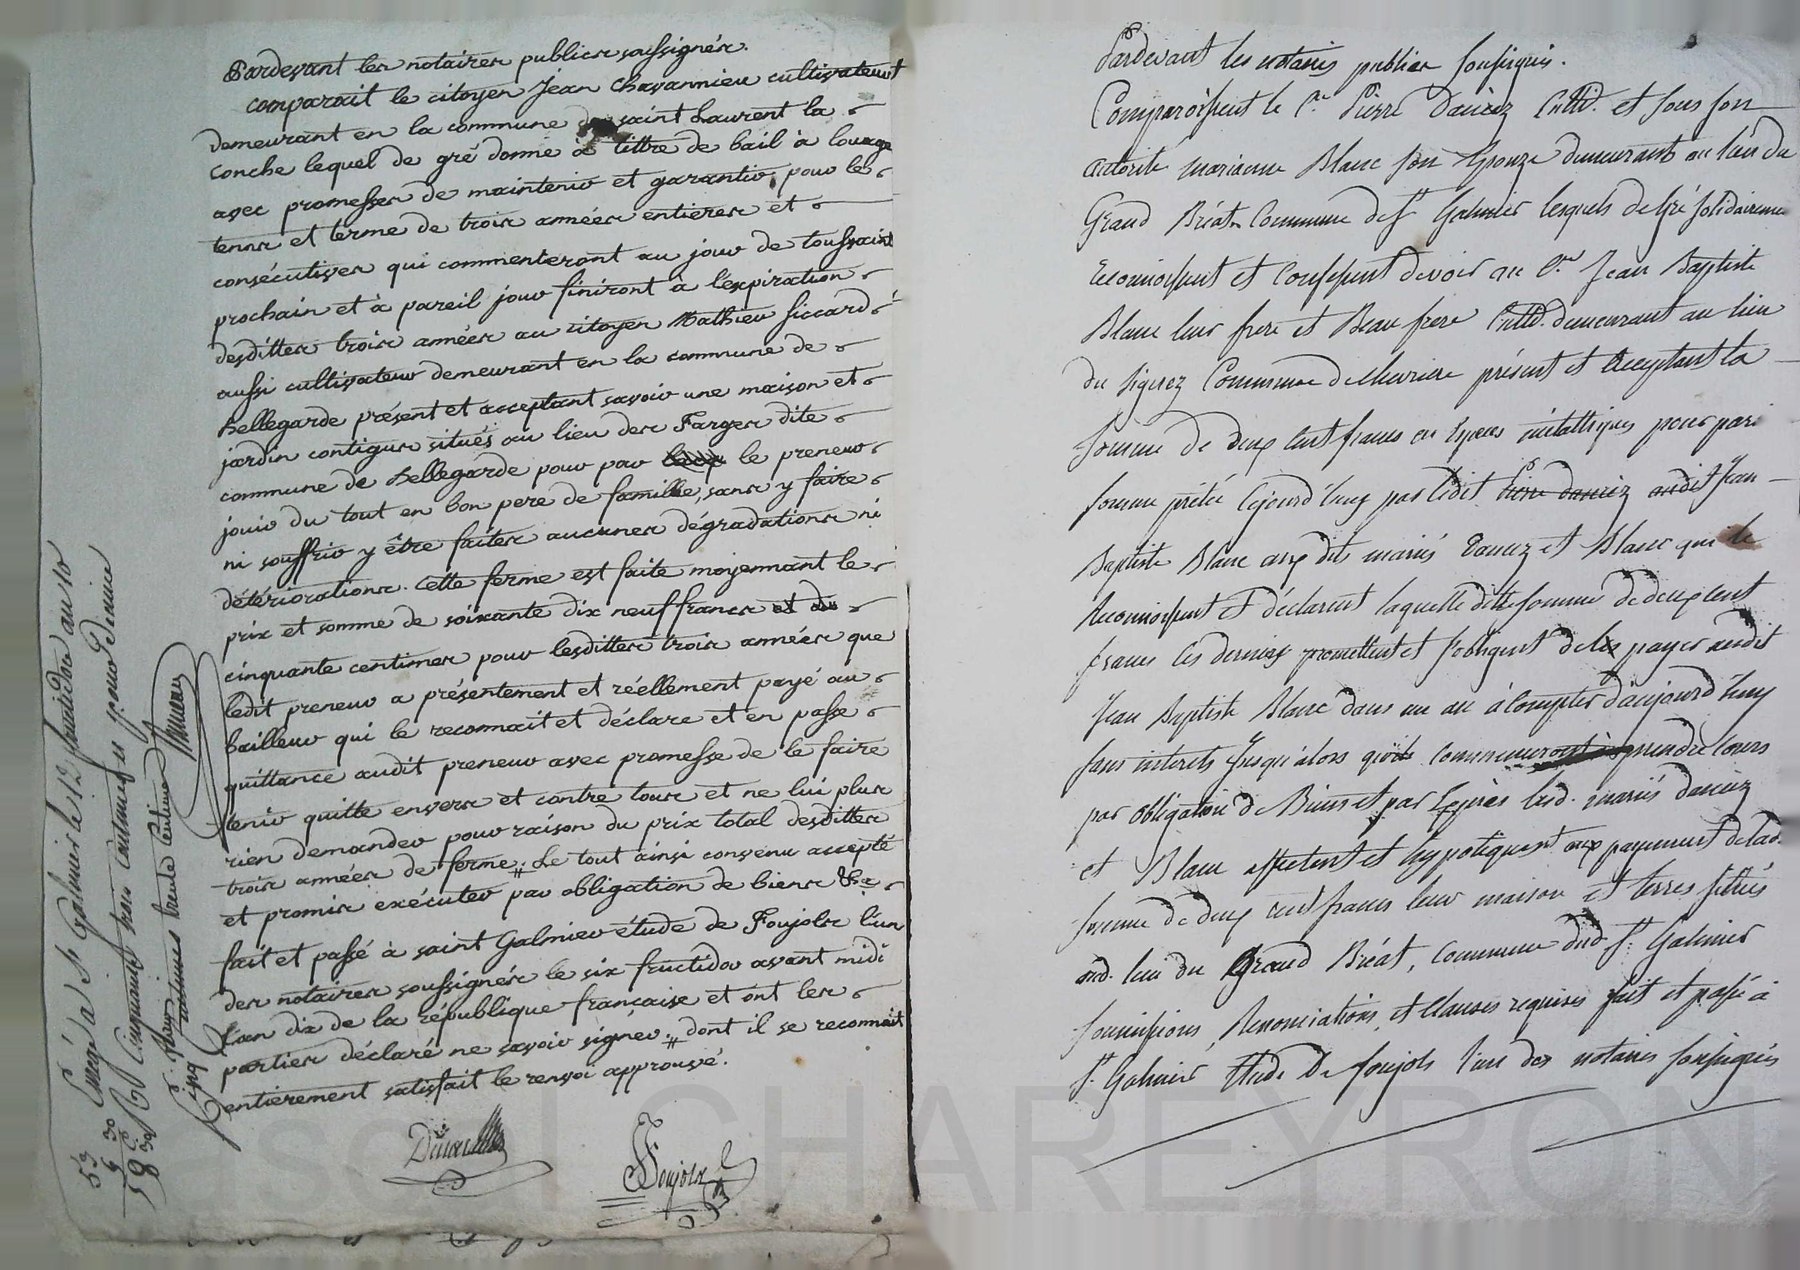 Pardevant les notaires publics soussignés.
comparait le citoyen Jean Chavannieu cultivateur
demeurant en la commune de saint Laurent la
conche lequel de gré donne à tittre de bail à louage
avec promesses de maintenir et garantir pour le
tems et terme de trois années entieres et
consécutives qui commenteront au jour de toussaint
prochain et à pareil jour finiront a l'expiration
desdittes trois années au citoyen Mathieu Siccard
aussi cultivateur demeurant en la commune de
Bellegarde présent et acceptant savoir une maison et
jardin contigus situés au lieu des Farges dite
commune de Bellegarde pour par le preneur
jouir du tout en bon pere de famille, sans y faire
ni souffrir y être faites aucunes dégradations ni
détériorations. Cette ferme est faite moyennant le
prix et somme de soixante dix neuf francs et du
cinquante centimes pour lesdittes trois années que
ledit preneur a présentement et réellement payé au
bailleur qui le reconnait et déclare et en passe
quittance audit preneur avec promesse de le faire
tenir quitte envers et contre tous et ne lui plus
rien demander pour raison du prix total desdittes
trois années de ferme. Le tout ainsi convenu accepté
et promis exécuter par obligation de biens &a
fait et passé à saint Galmier étude de Foujols l'un
des notaires soussignés le six fructidor avant midi
l'an dix de la république française et ont les
parties déclaré ne savoir signer. dont il se reconnait
entièrement satisfait le renvoi approuvé.
Foujols
Enregé à St Galmier le 12 fructidor an 10
53
5 30
58 30
Pardevant les notaires publics soussignés.
Comparoissent le Cen Pierre Danez Cultr. et sous son
autorité Marianne Blanc son Epouze demeurants au lieu du
Grand Bréat Commune de St Galmier lesquels de Gré solidairement
Reconnoissent et Confessent devoir au Cen Jean Baptiste
Blanc leur frere et Beau frere Cultr. demeurant au lieu
du Commune de présent et acceptant la
somme de deux cent francs en Espèces métalliques pour pareille
somme prêtée cejourd'huy par ledit Jean
Baptiste Blanc aux dits mariés Danez et Blanc qui le
Reconnoissent et déclarent laquelle ditte somme de deux cent
francs ces derniers promettent et s'obligent de les payer audit
Jean Baptiste Blanc dans un an à Compter d'aujourd'huy
sans interets jusqu'alors prendre cours
par obligation de Biens et par Exprès lesd. mariés Danez
et Blanc affectent et hypotequent aux payement de lad.
somme de deux cent francs leur maison et terres situés
aud. lieu du Grand Bréat, Commune dud. St Galmier
soumissions, Renonciations, et Clauses requises fait et passé à
St Galmier Etude De foujols l'un des notaires soussignés